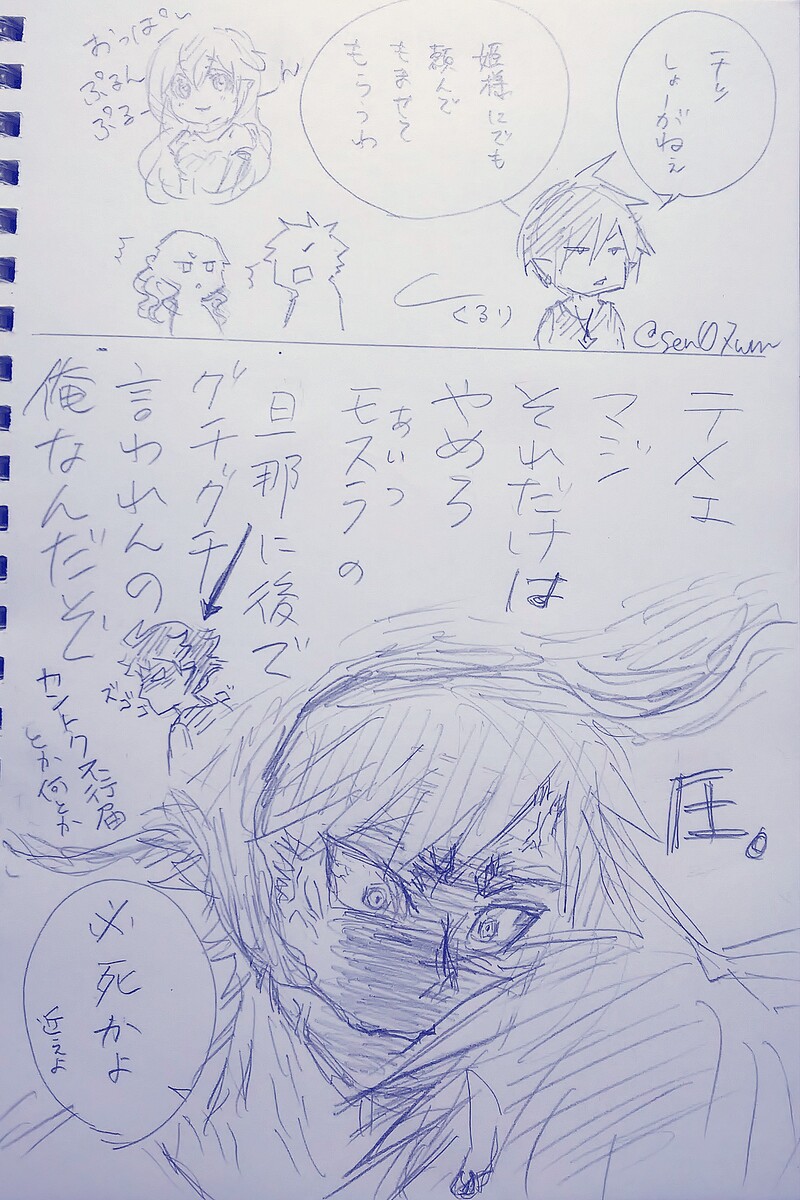 チッ
しょーがねぇ
姫様にでも
頼んで
もませて
もらうわ
おっぱい
ぷるん
ぷるー
ん
くるり
@sen07wm
テメエ
マジ
それだけは
やめろ
あいつ
モスラの
旦那に後で
グチグチ
言われんの
俺なんだぞ
ズゴゴ
カントク不行届
とか何とか
圧。
必死かよ
近えよ